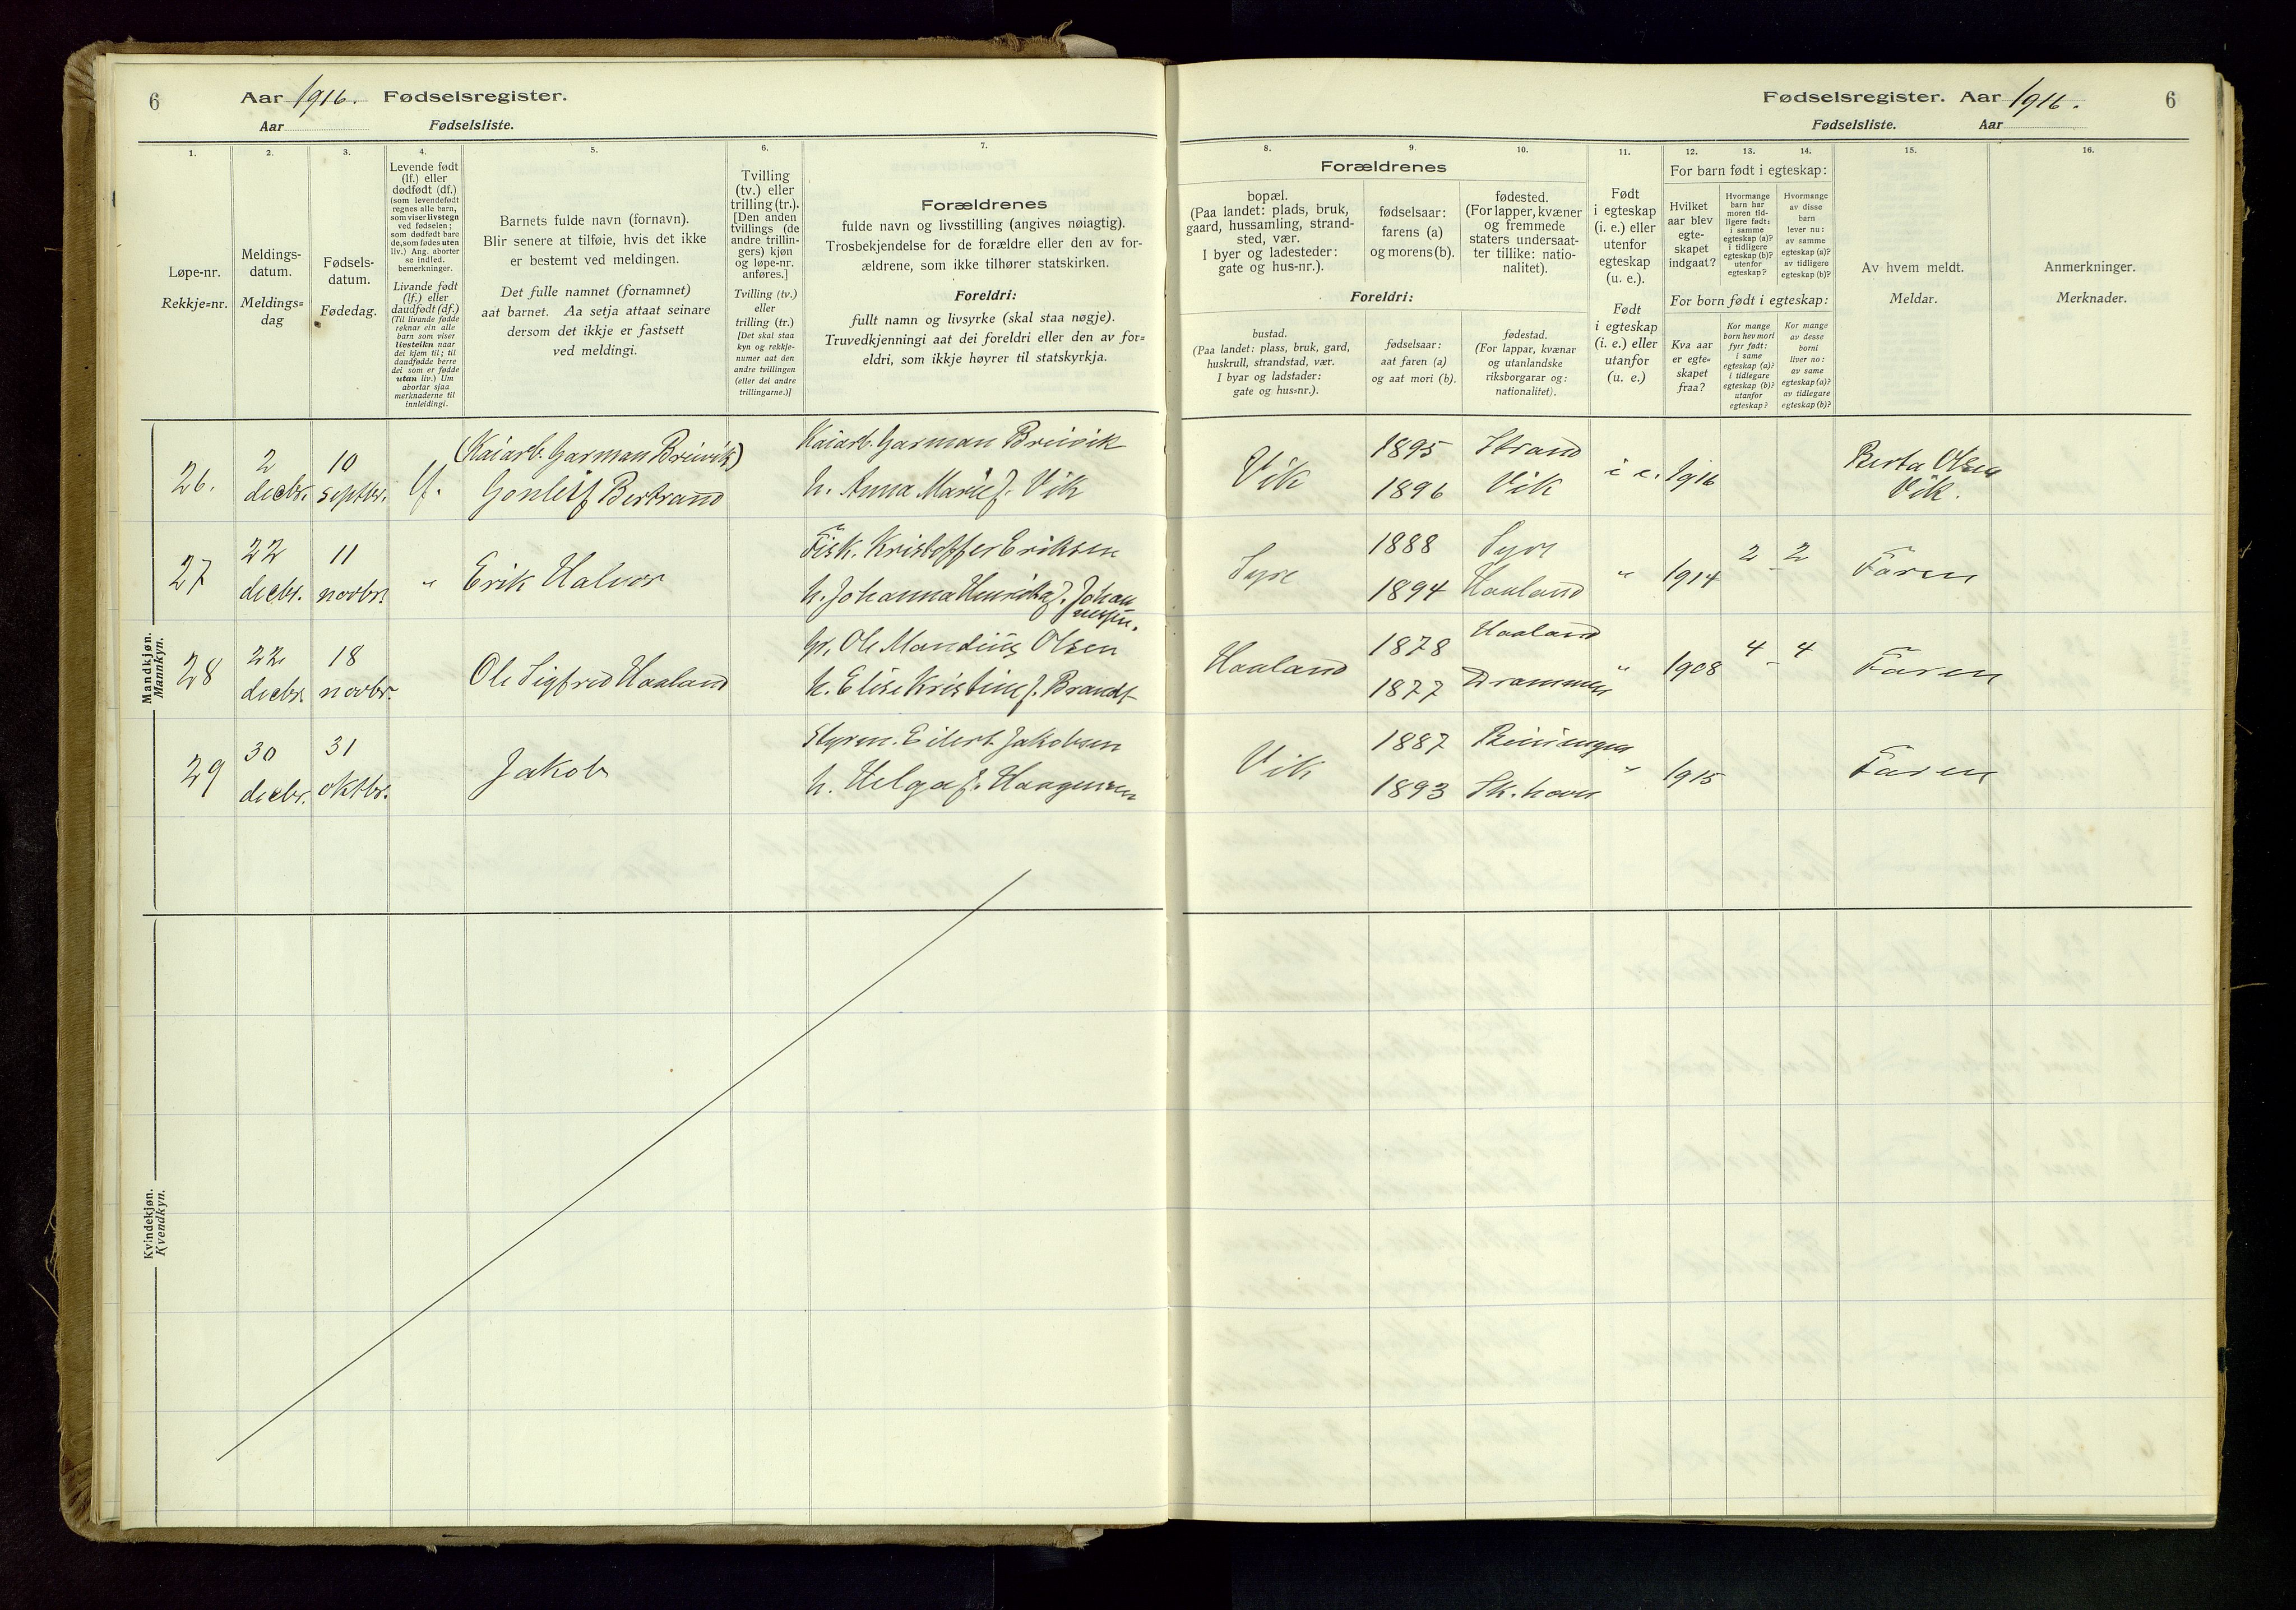 6
Aar 1916. Fødselsregister.
Aar Fødselsliste.
1.
2.
3.
4.
5.
6.
7.
Løpe-nr.
Rekkje=nr.
Meldings-
datum.
Meldings=
dag
Fødsels-
datum.
Fødedag.
Levende født
(lf.) eller
dødfødt (df.)
(som levendefødt
regnes alle barn,
som viser livstegn
ved fødselen;
som dødfødt bare
de, som fødes uten
liv.) Ang. aborter
se indled.
bemerkninger.
Livande født
(lf.) eller
daudfødt (df.)
(Til livande fødde
reknar ein alle
barn som viser
livsteikn naar
dei kjem til; til
daudfødde berre
dei som er fødde
utan liv.) Um
abortar sjaa
merknaderne til
innleidingi.
Barnets fulde navn (fornavn).
Blir senere at tilføie, hvis det ikke
er bestemt ved meldingen.
Det fulle namnet (fornamnet)
aat barnet. Aa setja attaat seinare
dersom det ikkje er fastsett
ved meldingi.
Tvilling
(tv.) eller
trilling (tr.).
[Den anden
tvillings (de
andre trillin-
gers) kjøn
og løpe-nr.
anføres.]
Tvilling (tv.)
eller
trilling (tr.)
[Det skal staa
kyn og rekkje-
numer aat den
andre tvillingen
(eller dei andre
trillingarne.)]
Forældrenes
fulde navn og livsstilling (angives nøiagtig).
Trosbekjendelse for de forældre eller den av for-
ældrene, som ikke tilhører statskirken.
Foreldri:
fullt namn og livsyrke (skal staa nøgje).
Truvedkjenningi aat dei foreldri eller den av for=
eldri, som ikkje høyrer til statskyrkja.
Mandkjøn.
Mannkyn.
26.
2
decbr.
10
septbr.
lf.
(Kaiarb. Garman Breivik)
Gonleif Bertrand
Kaiarb. Garman Breivik
h. Anna Marie f. Vik
27
22
decbr.
11
novbr.
"
Erik Halvor
Fisk. Kristoffer Eriksen
h. Johanna Henrikka f. Johan
nesen.
28
22
decbr.
18
novbr.
Ole Sigfred Haaland
gr. Ole Mandius Olsen
h. Elise Kristine f. Brandt
29
30
decbr.
31
oktbr.
Jakob
Styrm. Eilert Jakobsen
h. Helga f. Haagensen
Kvindekjøn.
Kvendkyn.
Fødselsregister. Aar 1916.
6
Fødselsliste. Aar
8.
9.
10.
11.
12.
13.
14.
15.
16.
Forældrenes
bopæl.
(Paa landet: plads, bruk,
gaard, hussamling, strand-
sted, vær.
I byer og ladesteder:
gate og hus-nr.).
fødselsaar:
farens (a)
og morens (b).
fødested.
(For lapper, kvæner
og fremmede
staters undersaat-
ter tillike: natio-
nalitet).
Foreldri:
bustad.
(Paa landet: plass, bruk, gard,
huskrull, strandstad, vær.
I byar og ladstader:
gate og hus=nr.).
fødselsaar:
aat faren (a)
og aat mori (b).
fødestad.
(For lappar, kvænar
og utanlandske
riksborgarar og:
nationalitet).
Født
i egteskap
(i. e.) eller
utenfor
egteskap
(u. e.).
Født
i egteskap
(i. e.) eller
utanfor
(u. e.)
For barn født i egteskap:
Hvilket
aar blev
egte-
skapet
indgaat?
Hvormange
barn har
moren tid-
ligere født:
i samme
egteskap (a)?
i tidligere
egteskap (b)?
utenfor
egteskap?
Hvormange
av disse
barn
lever nu:
av samme
egteskap (a)?
av tidligere
egteskap (b)?
For born født i egteskap:
Kva aar
er egte=
skapet
fraa?
Kor mange
born hev mori
fyrr født:
i same
egteskap (a)?
i tidlegare
egteskap (b)?
utanfor
egteskap?
Kor mange
av desse
borni
liver no:
av same
egteskap (a)?
av tidlegare
egteskap (b)?
Av hvem meldt.
Meldar.
Anmerkninger.
Merknader.
Vik
1895
1896
Strand
Vik
i e.
1916
Berta Olsen
Vik.
Syre
1888
1894
Syre
Haaland
"
1914
2 - 2
Faren
Haaland
1878
1877
Haaland
Drammen
"
1908
4 - 4
Faren
Vik
1887
1893
Sk. havn
"
1915
Faren